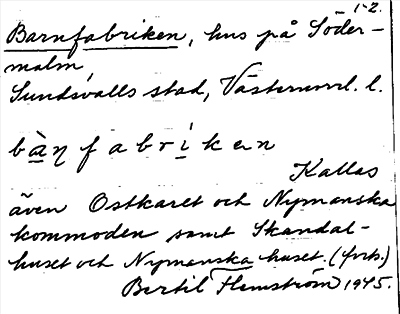 1-2.
Barnfabriken, hus på Söder-
malm,
Sundsvalls stad, Västernorrl. l.
bàŋfabrìken
Kallas
även Ostkaret och Nymanska
kommoden samt Skandal-
huset och Nymanska huset. (forts.)
Bertil Flemström 1945.